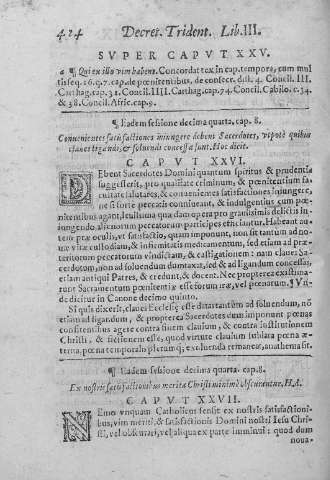 424 Decret. Trident. Lib. III.
SVPER CAPVT XXV.
a ¶ Qui ex illo vim habent. Concordat tex in cap. tempora, cum mul
tis seq. 26. q. 7. cap. de pœnitentibus, de consecr. dist. 4. Concil. III.
Carthag. cap. 31. Concil. IIII. Carthag. cap. 74. Concil. Cabilo. c. 34.
& 38. Concil. Afric. cap. 9.
¶ Eadem sessione decima quarta, cap. 8.
Conuenientes satisfactiones iniungere debent Sacerdotes, vtpote quibus
claues ligandi, & soluendi concessæ sunt. Hoc dicit.
CAPVT XXVI.
DEbent Sacerdotes Domini quantum spiritus & prudentia
suggesserit, pro qualitate criminum, & pœnitentium fa-
cultate salutares, & conuenientes satisfactiones iniungere,
ne si forte peccatis conniueant, & indulgentius cum pœ-
nitentibus agant, leuissima quædam opera pro grauissimis delictis in-
iungendo alienorum peccatorum participes efficiantur. Habeant au-
tem præ oculis, vt satisfactio, quam imponunt, non sit tantum ad no-
uæ vitæ custodiam, & infirmitatis medicamentum, sed etiam ad præ-
teritorum peccatorum vindictam, & castigationem: nam claues Sa-
cerdotum, non ad soluendum duntaxat, sed & ad ligandum concessas,
etiam antiqui Patres, & credunt, & docent. Nec propterea existima-
runt Sacramentum pœnitentiæ esse forum iræ, vel pœnarum. ¶ Vn-
de dicitur in Canone decimo quinto.
Si quis dixerit, claues Ecclesiæ esse datas tantum ad soluendum, nō
etiam ad ligandum, & propterea Sacerdotes dum imponunt pœnas
confitentibus agere contra finem clauium, & contra institutionem
Christi, & fictionem esse, quod virtute clauium sublata pœna æ-
terna, pœna temporalis plerumq; exsoluenda remaneat, anathema sit.
¶ Eadem sessione decima quarta, cap. 8.
Ex nostris satisfactionibus merita Christi minimè obscurantur. H. A.
CAPVT XXVII.
NEmo vnquam Catholicus sensit ex nostris satisfactioni-
bus, vim meriti, & satisfactionis Domini nostri Iesu Chri-
sti, vel obscurari, vel aliqua ex parte imminui: quod dum
noua-